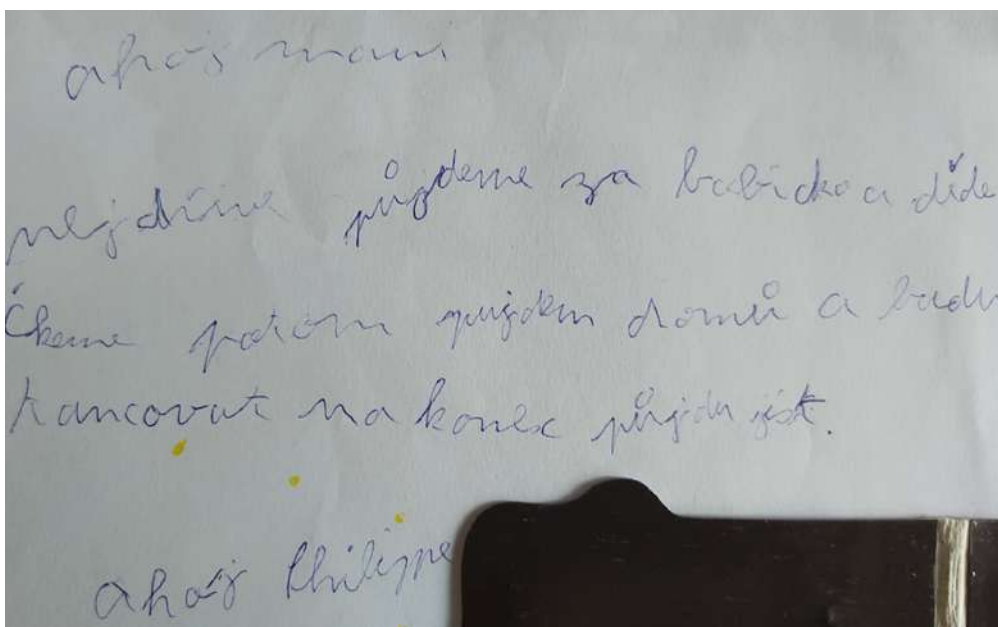 ahoj mami
nejdříve půjdeme za babičko a děde
čkeme potom pujdem domů a budu
tancovat na konec půjdu jíst.
ahoj Philippe